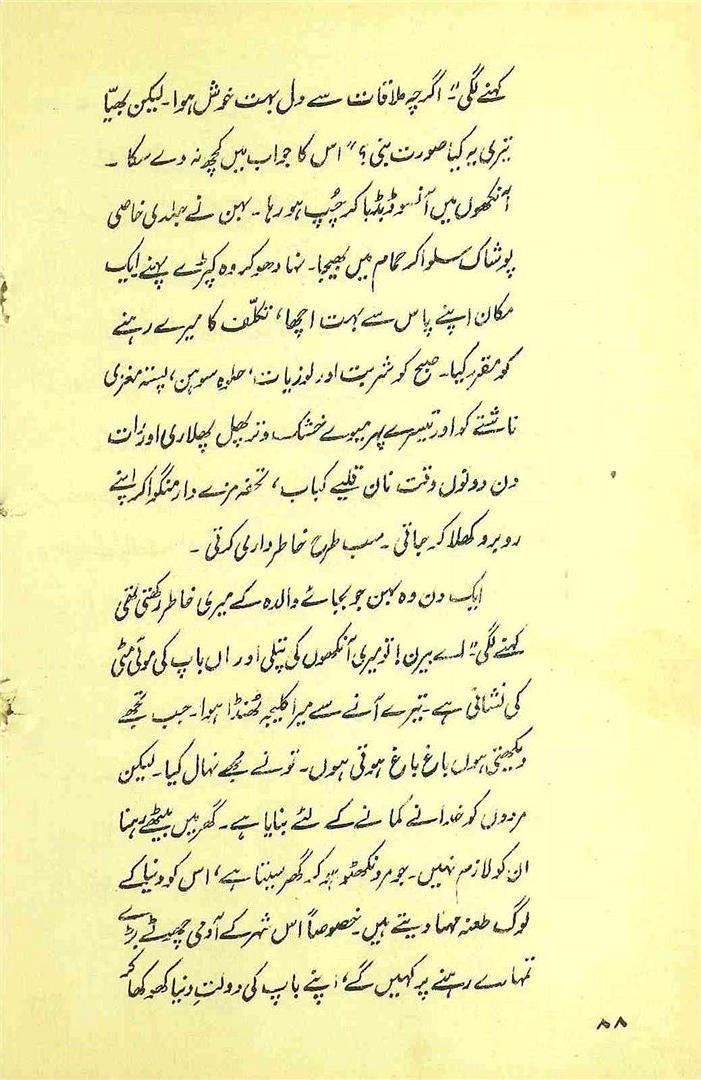 کہنے لگی "۔ اگرچہ ملاقات سے دل بہت خوش ہوا۔ لیکن بھیّا
تیری یہ کیا صورت بنی؟" اس کا جواب میں کچھ نہ دے سکا ۔
آنکھوں میں آنسو ڈبڈبا کر چُپ ہو رہا ۔ بہن نے جلدی خاصی
پوشاک سلوا کر حمام میں بھیجا۔ نہا دھو کر وہ کپڑے پہنے ایک
مکان اپنے پاس سے بہت اچھا، تکلّف کا میرے رہنے
کو مقرر کیا۔ صبح کو شربت اور لوزیات، حلوہ سوہن، پستہ مغزی
ناشتے کو اور تیسرے پہر میوے خشک و تر پھل پھلاری اور رات
دن دونوں وقت نان قلیے کباب، تحفہ مزے دار منگوا کر اپنے
روبرو کھلا کر جاتی ۔ سب طرح خاطر داری کرتی ۔
ایک دن وہ بہن جو بجائے والدہ کے میری خاطر رکھتی تھی
کہنے لگی "۔ اے بیرن! تو میری آنکھوں کی پتلی اور ماں باپ کی موئی مٹی
کی نشانی ہے ۔ تیرے آنے سے میرا کلیجہ ٹھنڈا ہوا۔ جب تجھے
دیکھتی ہوں باغ باغ ہوتی ہوں۔ تونے مجھے نہال کیا۔ لیکن
مردوں کو خدا نے کمانے کے لئے بنایا ہے۔ گھر میں بیٹھے رہنا
ان کو لازم نہیں۔ جو مرد نکھٹو ہو کر گھر سیتا ہے، اس کو دنیا کے
لوگ طعنہ مہنا دیتے ہیں۔ خصوصاً اس شہر کے آدمی چھوٹے بڑے
تمہارے رہنے پر کہیں گے، اپنے باپ کی دولتِ دنیا کھو کھا کر
۸۸